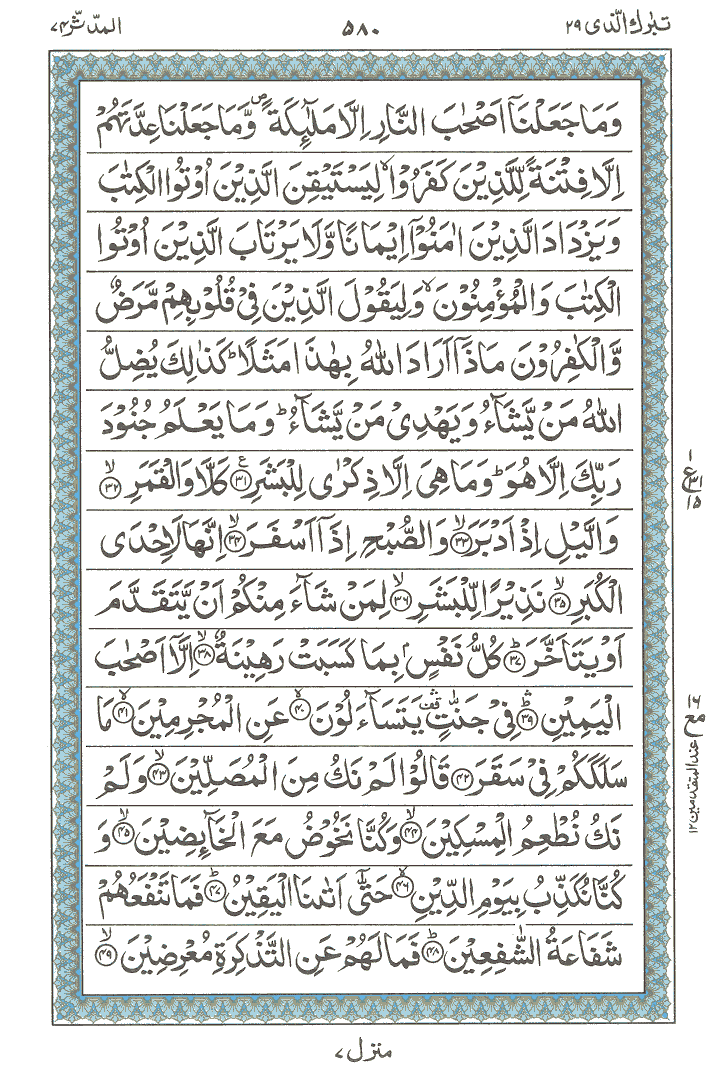 تبٰرك الّذی ۲۹
۵۸۰
المدّثّر ۷۴
وَمَا جَعَلْنَاۤ اَصْحٰبَ النَّارِ اِلَّا مَلٰٓئِكَةً ۪ وَّمَا جَعَلْنَا عِدَّتَهُمْ
اِلَّا فِتْنَةً لِّلَّذِيْنَ كَفَرُوْا ۙ لِيَسْتَيْقِنَ الَّذِيْنَ اُوْتُوا الْكِتٰبَ
وَيَزْدَادَ الَّذِيْنَ اٰمَنُوْۤا اِيْمَانًا وَّلَا يَرْتَابَ الَّذِيْنَ اُوْتُوا
الْكِتٰبَ وَالْمُؤْمِنُوْنَ ۙ وَلِيَقُوْلَ الَّذِيْنَ فِیْ قُلُوْبِهِمْ مَّرَضٌ
وَّالْكٰفِرُوْنَ مَاذَاۤ اَرَادَ اللّٰهُ بِهٰذَا مَثَلًا ؕ كَذٰلِكَ يُضِلُّ
اللّٰهُ مَنْ يَّشَآءُ وَيَهْدِیْ مَنْ يَّشَآءُ ؕ وَمَا يَعْلَمُ جُنُوْدَ
رَبِّكَ اِلَّا هُوَ ؕ وَمَا هِیَ اِلَّا ذِكْرٰی لِلْبَشَرِ ۳۱ ع كَلَّا وَالْقَمَرِ ۙ ۳۲
وَالَّيْلِ اِذْ اَدْبَرَ ۙ ۳۳ وَالصُّبْحِ اِذَاۤ اَسْفَرَ ۙ ۳۴ اِنَّهَا لَاِحْدَی
الْكُبَرِ ۙ ۳۵ نَذِيْرًا لِّلْبَشَرِ ۙ ۳۶ لِمَنْ شَآءَ مِنْكُمْ اَنْ يَّتَقَدَّمَ
اَوْ يَتَاَخَّرَ ؕ ۳۷ كُلُّ نَفْسٍۭ بِمَا كَسَبَتْ رَهِيْنَةٌ ۙ ۳۸ اِلَّاۤ اَصْحٰبَ
الْيَمِيْنِ ۛؕ ۳۹ فِیْ جَنّٰتٍ ۛ قف يَتَسَآءَلُوْنَ ۙ ۴۰ عَنِ الْمُجْرِمِيْنَ ۙ ۴۱ مَا
سَلَكَكُمْ فِیْ سَقَرَ ۴۲ قَالُوْا لَمْ نَكُ مِنَ الْمُصَلِّيْنَ ۙ ۴۳ وَلَمْ
نَكُ نُطْعِمُ الْمِسْكِيْنَ ۙ ۴۴ وَكُنَّا نَخُوْضُ مَعَ الْخَآئِضِيْنَ ۙ ۴۵ وَ
كُنَّا نُكَذِّبُ بِيَوْمِ الدِّيْنِ ۙ ۴۶ حَتّٰۤی اَتٰىنَا الْيَقِيْنُ ؕ ۴۷ فَمَا تَنْفَعُهُمْ
شَفَاعَةُ الشّٰفِعِيْنَ ؕ ۴۸ فَمَا لَهُمْ عَنِ التَّذْكِرَةِ مُعْرِضِيْنَ ۙ ۴۹
ع ۱ ۳۱ ۱۵
مع ۱۶ عند المتقدمين ۱۲
منزل ۷